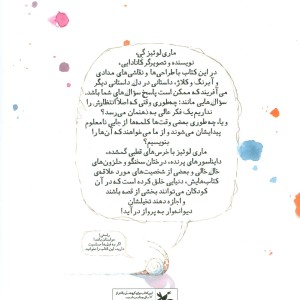 ماری لوئیز گی،
نویسنده و تصویرگر کانادایی،
در این کتاب با طراحی‌ها و نقاشی‌های مدادی
و آبرنگ و کلاژ، داستانی در دل داستانی دیگر
می‌آفریند که ممکن است پاسخ سؤال‌های شما باشد.
سؤال‌هایی مانند: چه‌طوری وقتی که اصلاً انتظارش را
نداریم یک فکر عالی به ذهنمان می‌رسد؟
و یا، چه‌طوری بعضی وقت‌ها کلمه‌ها از جایی نامعلوم
پیدایشان می‌شوند و از ما می‌خواهند که آن‌ها را
بنویسیم؟
ماری لوئیز با خرس‌های قطبی گمشده،
دایناسورهای پرنده، درختان سخنگو و حلزون‌های
خال خالی و بعضی از شخصیت‌های مورد علاقه‌ی
کتاب‌هایش، دنیایی خلق کرده است که در آن
کودکان می‌توانند بخشی از قصه باشند
و اجازه دهند تخیلشان
دیوانه‌وار به پرواز درآید!